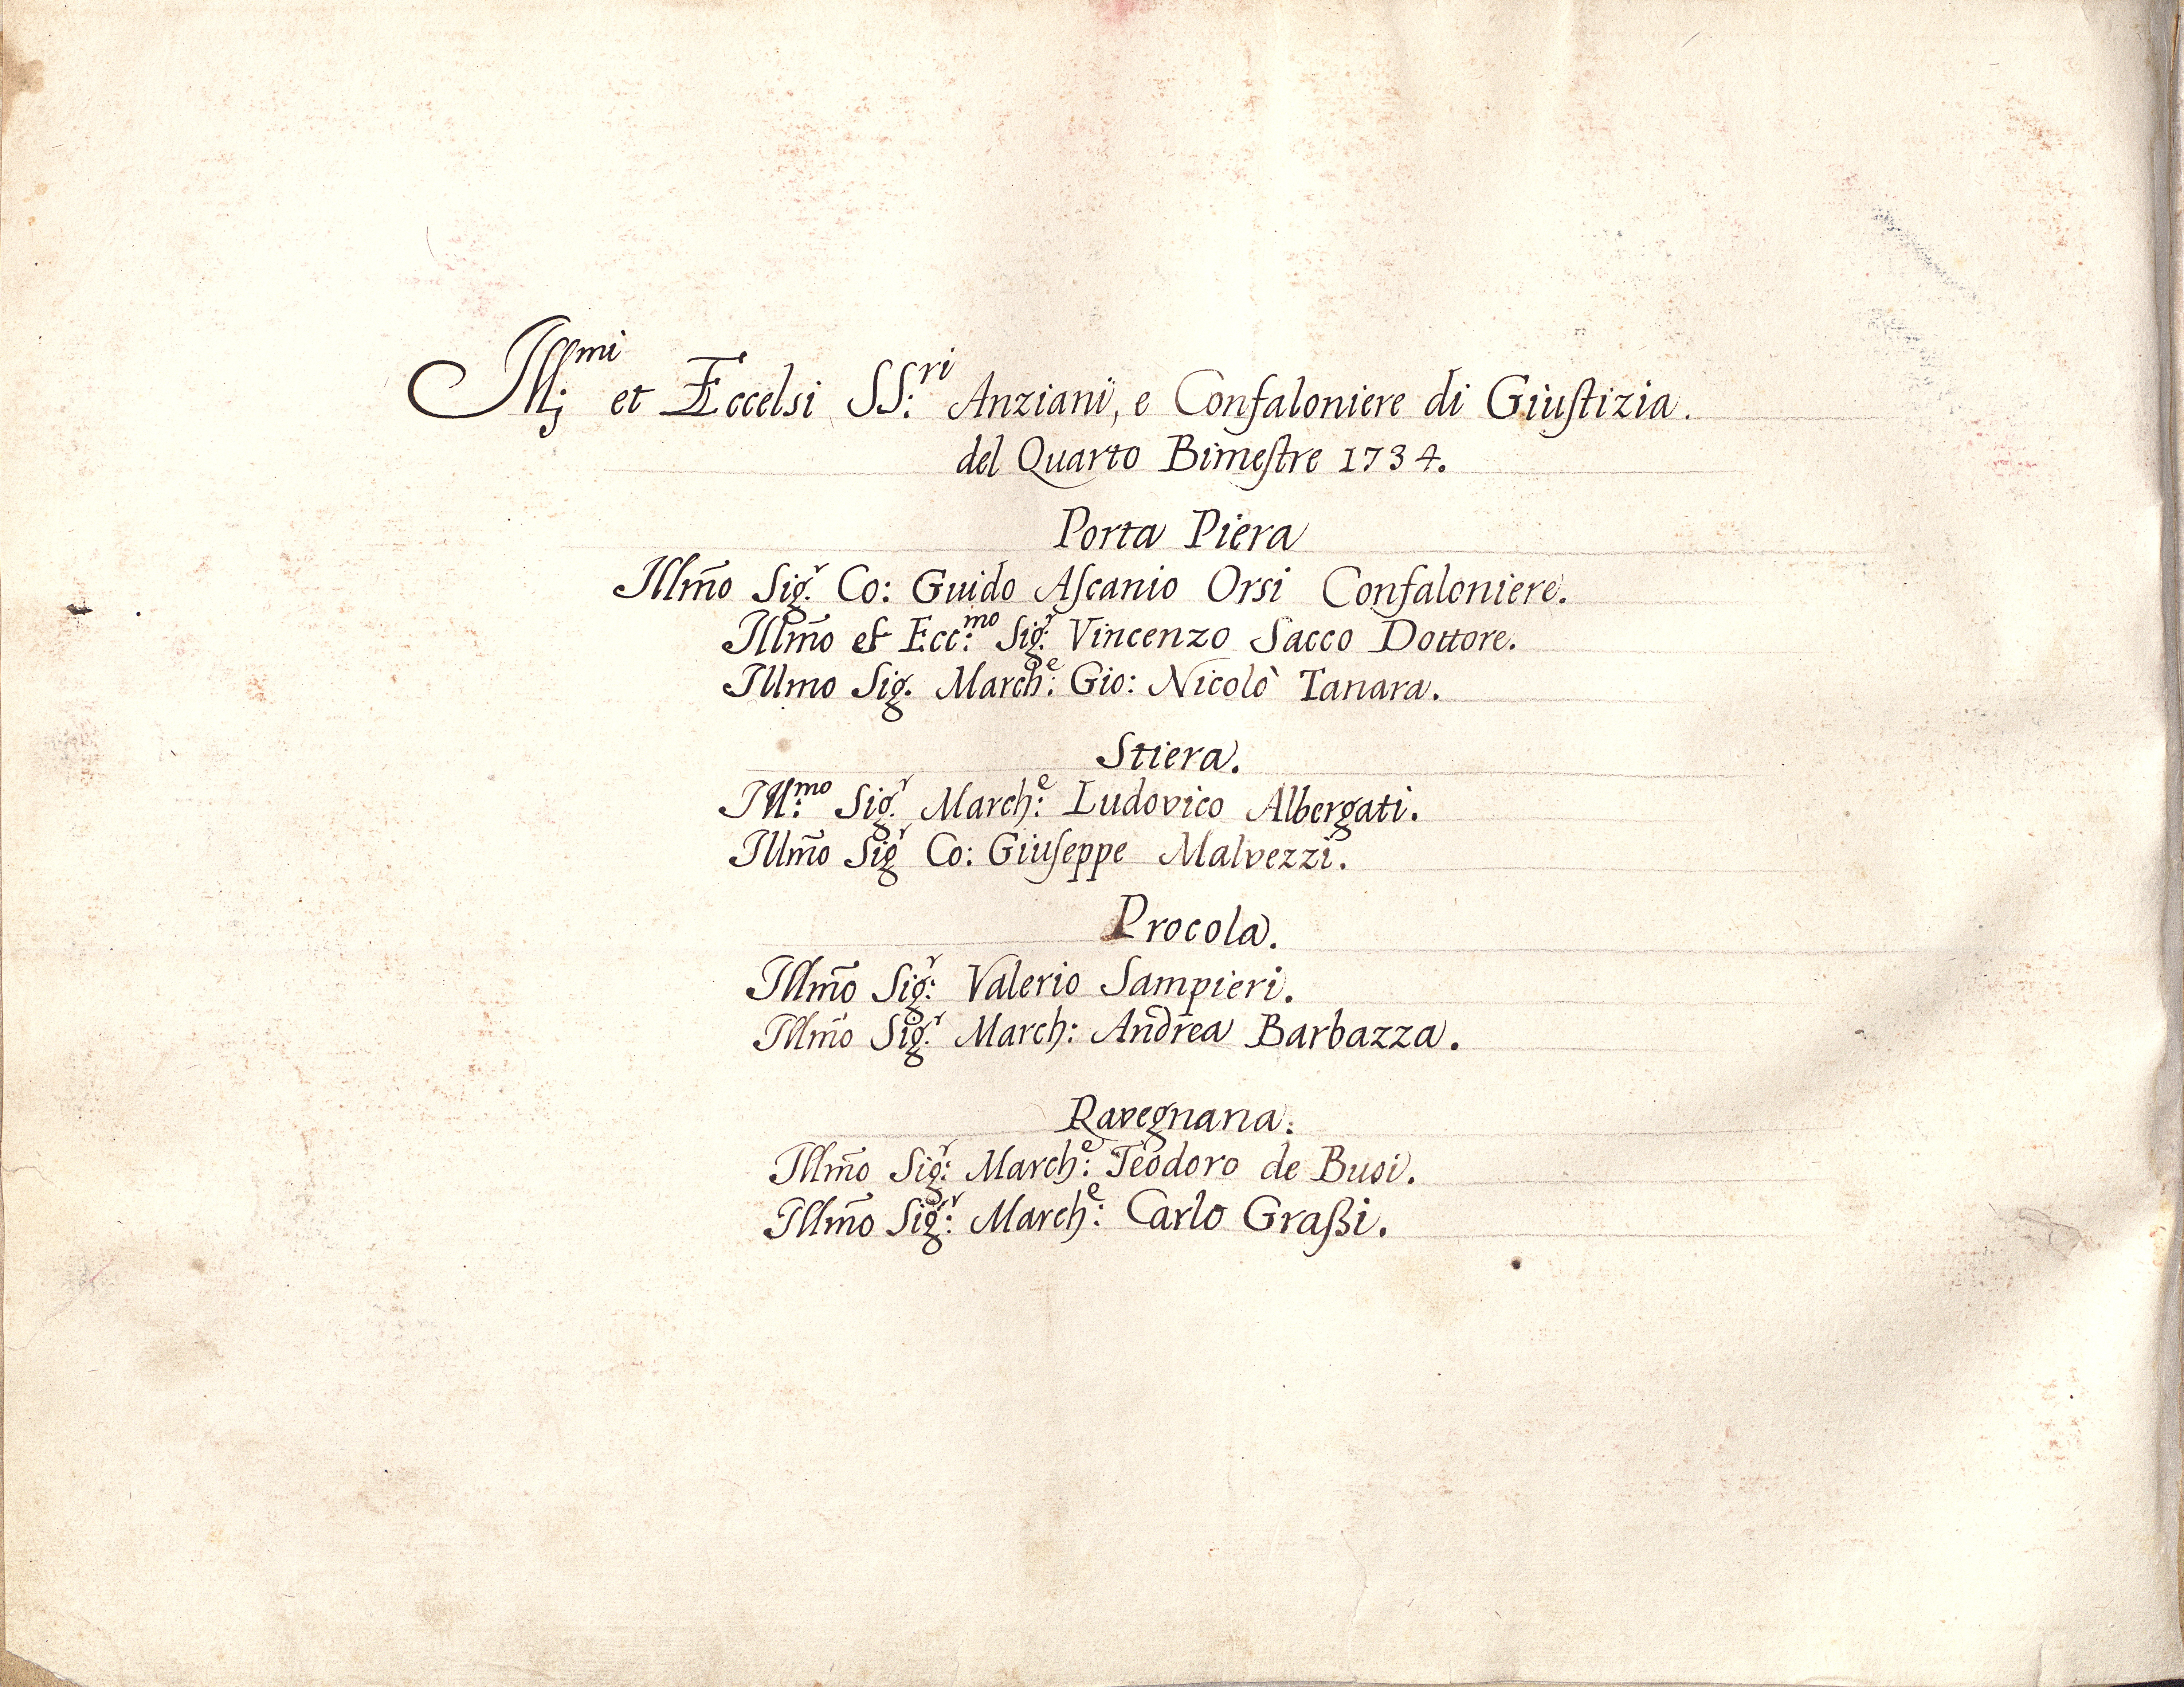 Ill:mi et Eccelsi SS:ri Anziani, e Confaloniere di Giuſtizia.
del Quarto Bimeſtre 1734.
Porta Piera
Illm̃o Sig.r Co: Guido Aſcanio Orsi Confaloniere.
Illm̃o et Ecc:mo Sig:r Vincenzo Sacco Dottore.
Illmo Sig. March:e Gio: Nicolò Tanara.
Stiera.
Ill:mo Sig.r March:e Ludovico Albergati.
Illm̃o Sigr Co: Giuſeppe Malvezzi.
Procola.
Illm̃o Sig:r Valerio Sampieri.
Illm̃o Sig.r March: Andrea Barbazza.
Ravegnana.
Illm̃o Sig:r March:e Teodoro de Buoi.
Illm̃o Sig:r March:e Carlo Graßi.